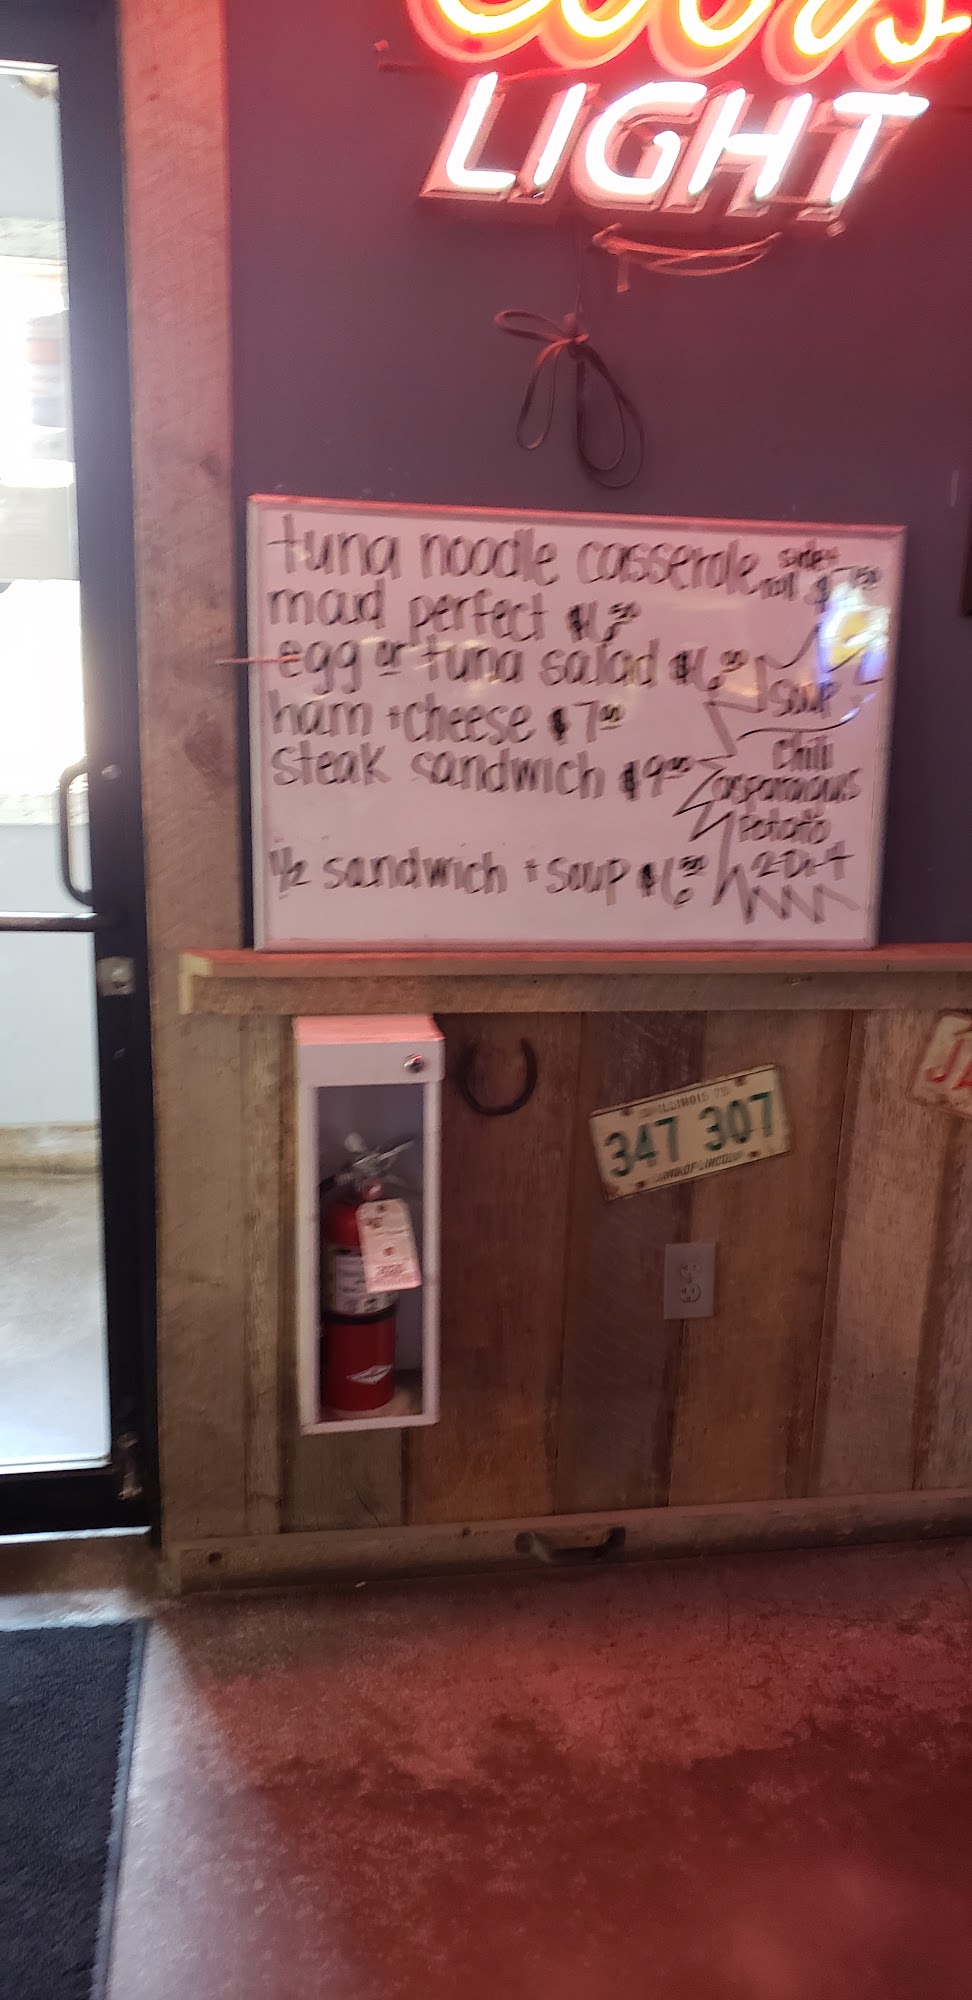 Coors
LIGHT
tuna noodle casserole side + roll
maid perfect $6.50
egg or tuna salad $6.00
ham + cheese $7.00
steak sandwich $9.00
1/2 sandwich + soup $6.50
Soup
Chili
asparagus
Potato
2-Dr 4
ILLINOIS 75
347 307
LAND OF LINCOLN